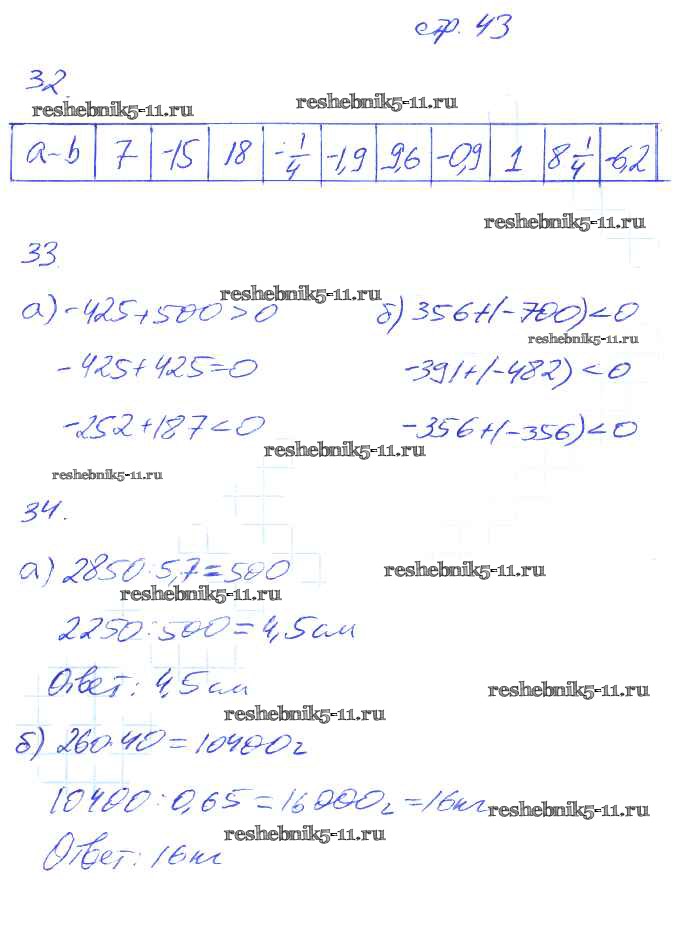 стр. 43
32.
reshebnik5-11.ru reshebnik5-11.ru
a-b 7 -15 18 -1/4 -1,9 9,6 -0,9 1 8 1/4 -6,2
reshebnik5-11.ru
33.
reshebnik5-11.ru
а) -425+500>0 б) 356+(-700)<0
reshebnik5-11.ru
-425+425=0 -391+(-482)<0
-252+187<0 -356+(-356)<0
reshebnik5-11.ru
reshebnik5-11.ru
34.
а) 2850:5,7=500 reshebnik5-11.ru
reshebnik5-11.ru
2250:500=4,5см
Ответ: 4,5см reshebnik5-11.ru
reshebnik5-11.ru
б) 260·40=10400г
10400:0,65=16000г=16кг reshebnik5-11.ru
reshebnik5-11.ru
Ответ: 16кг